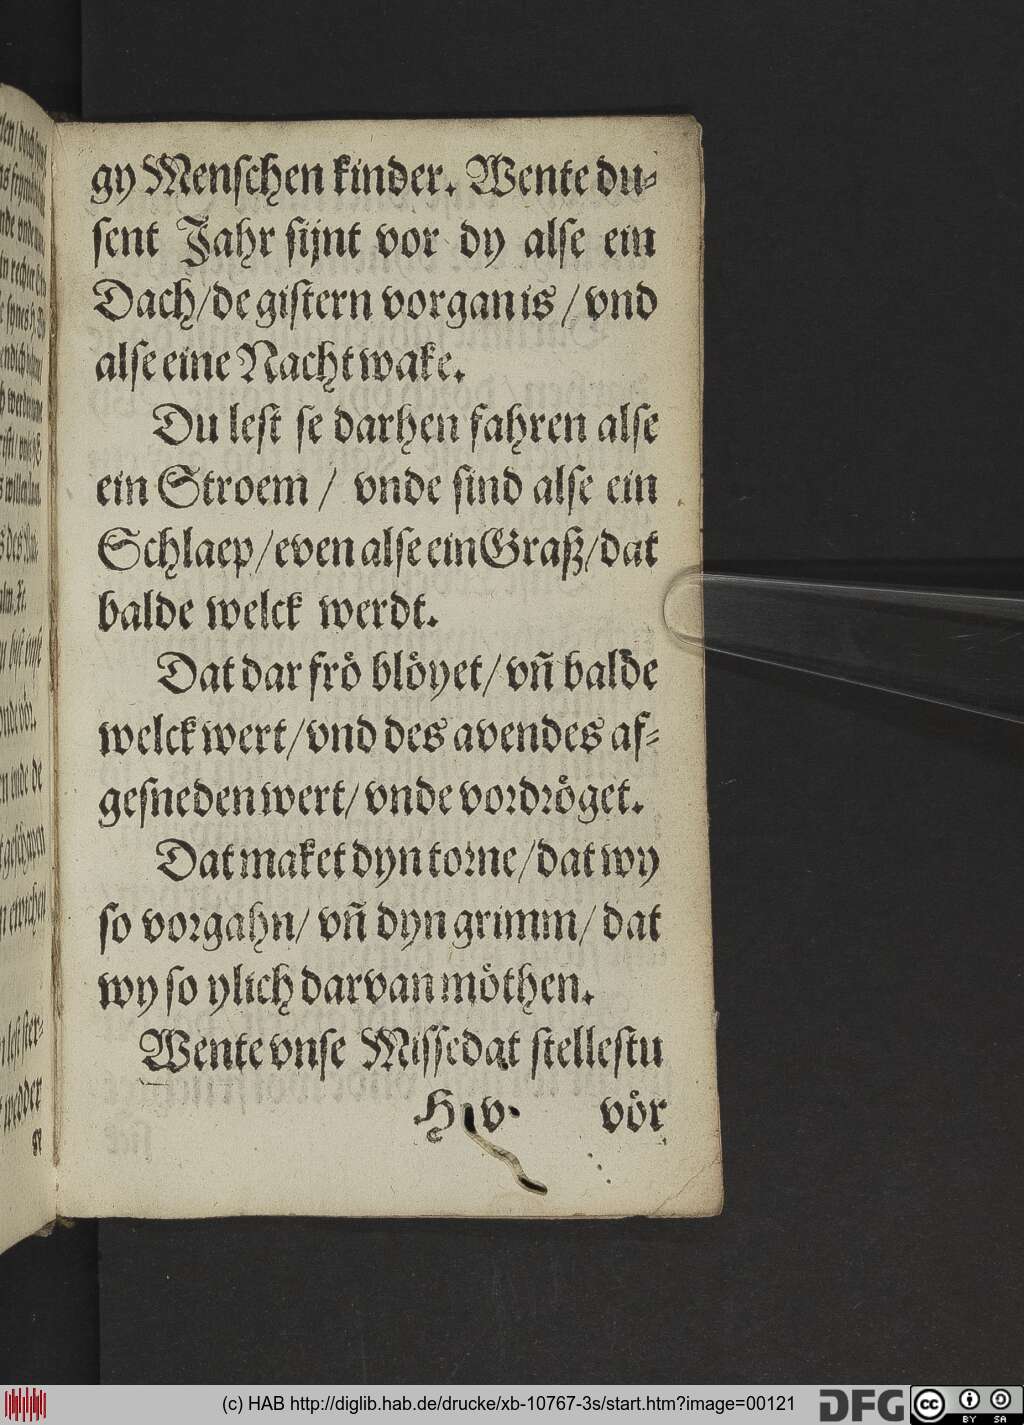 gy Menschen kinder. Wente du⸗
sent Jahr sijnt vor dy alse ein
Dach/de gistern vorgan is / vnd
alse eine Nachtwake.
Du lest se darhen fahren alse
ein Stroem / vnde sind alse ein
Schlaep/even alse ein Graß/dat
balde welck werdt.
Dat dar frö blöyet/vñ balde
welck wert/vnd des avendes af⸗
gesneden wert/ vnde vordröget.
Dat maket dyn torne/dat wy
so vorgahn/ vñ dyn grimm/ dat
wy so ylich darvan möthen.
Wente vnse Missedat stellestu
H v vör
(c) HAB http://diglib.hab.de/drucke/xb-10767-3s/start.htm?image=00121
DFG
cc BY SA